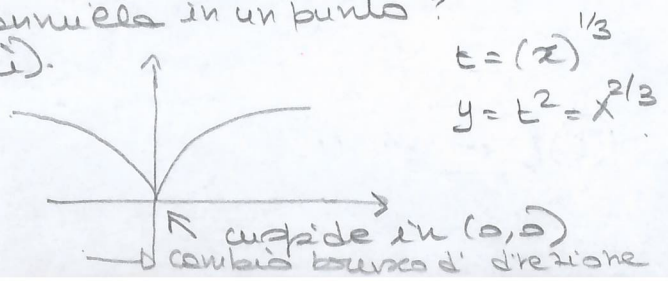 annulla in un punto?
i).
t = (x)^{1/3}
y = t² = x^{2/3}
cuspide in (0,0)
cambio brusco di direzione